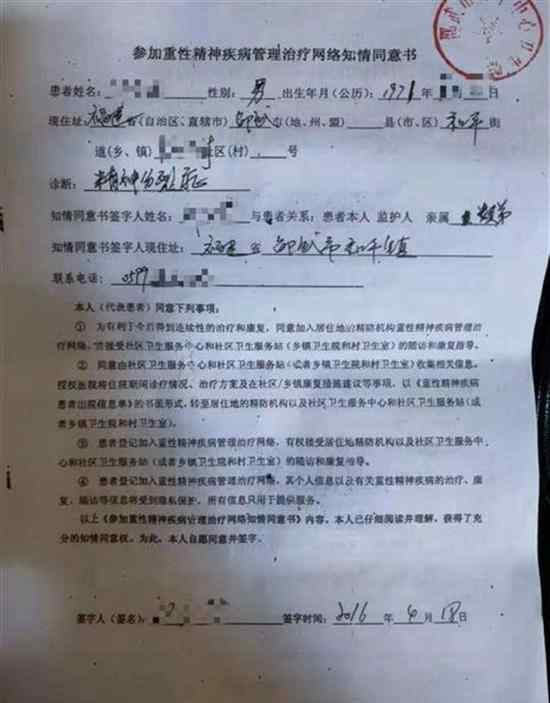 参加重性精神疾病管理治疗网络知情同意书
患者姓名: 性别: 男 出生年月(公历): 1971 年 日
现住址: 福建省(自治区、直辖市) 邵武市(地、州、盟) 县(市、区) 和平 街
道(乡、镇) 社区(村) 号
诊断: 精神分裂症
知情同意书签字人姓名: 与患者关系: 患者本人 监护人 亲属
知情同意书签字人现住址: 福建省邵武市和平镇
联系电话: 0599
本人(代表患者)同意下列事项:
① 为有利于今后得到连续性的治疗和康复,同意加入居住地的精防机构重性精神疾病管理治
疗网络,并接受社区卫生服务中心和社区卫生服务站(乡镇卫生院和村卫生室)的随访和康复指导。
② 同意由社区卫生服务中心和社区卫生服务站(或者乡镇卫生院和村卫生室)收集相关信息。
授权医院将住院期间诊疗情况、治疗方案及在社区/乡镇康复措施建议等事项,以《重性精神疾病
患者出院信息单》的书面形式,转至居住地的精防机构以及社区卫生服务中心和社区卫生服务站(或
者乡镇卫生院和村卫生室)。
③ 患者登记加入重性精神疾病管理治疗网络,有权接受居住地精防机构以及社区卫生服务中
心和社区卫生服务站(或者乡镇卫生院和村卫生室)的随访和康复指导。
④ 患者登记加入重性精神疾病管理治疗网络,其个人信息以及有关重性精神疾病的治疗、康
复、随访等信息将受到隐私保护,所有信息只用于提供服务。
以上《参加重性精神疾病管理治疗网络知情同意书》内容,本人已仔细阅读并理解,获得了充
分的知情同意权。为此,本人自愿同意并签字。
签字人(签名): 签字时间: 2016 年 4 月 18 日